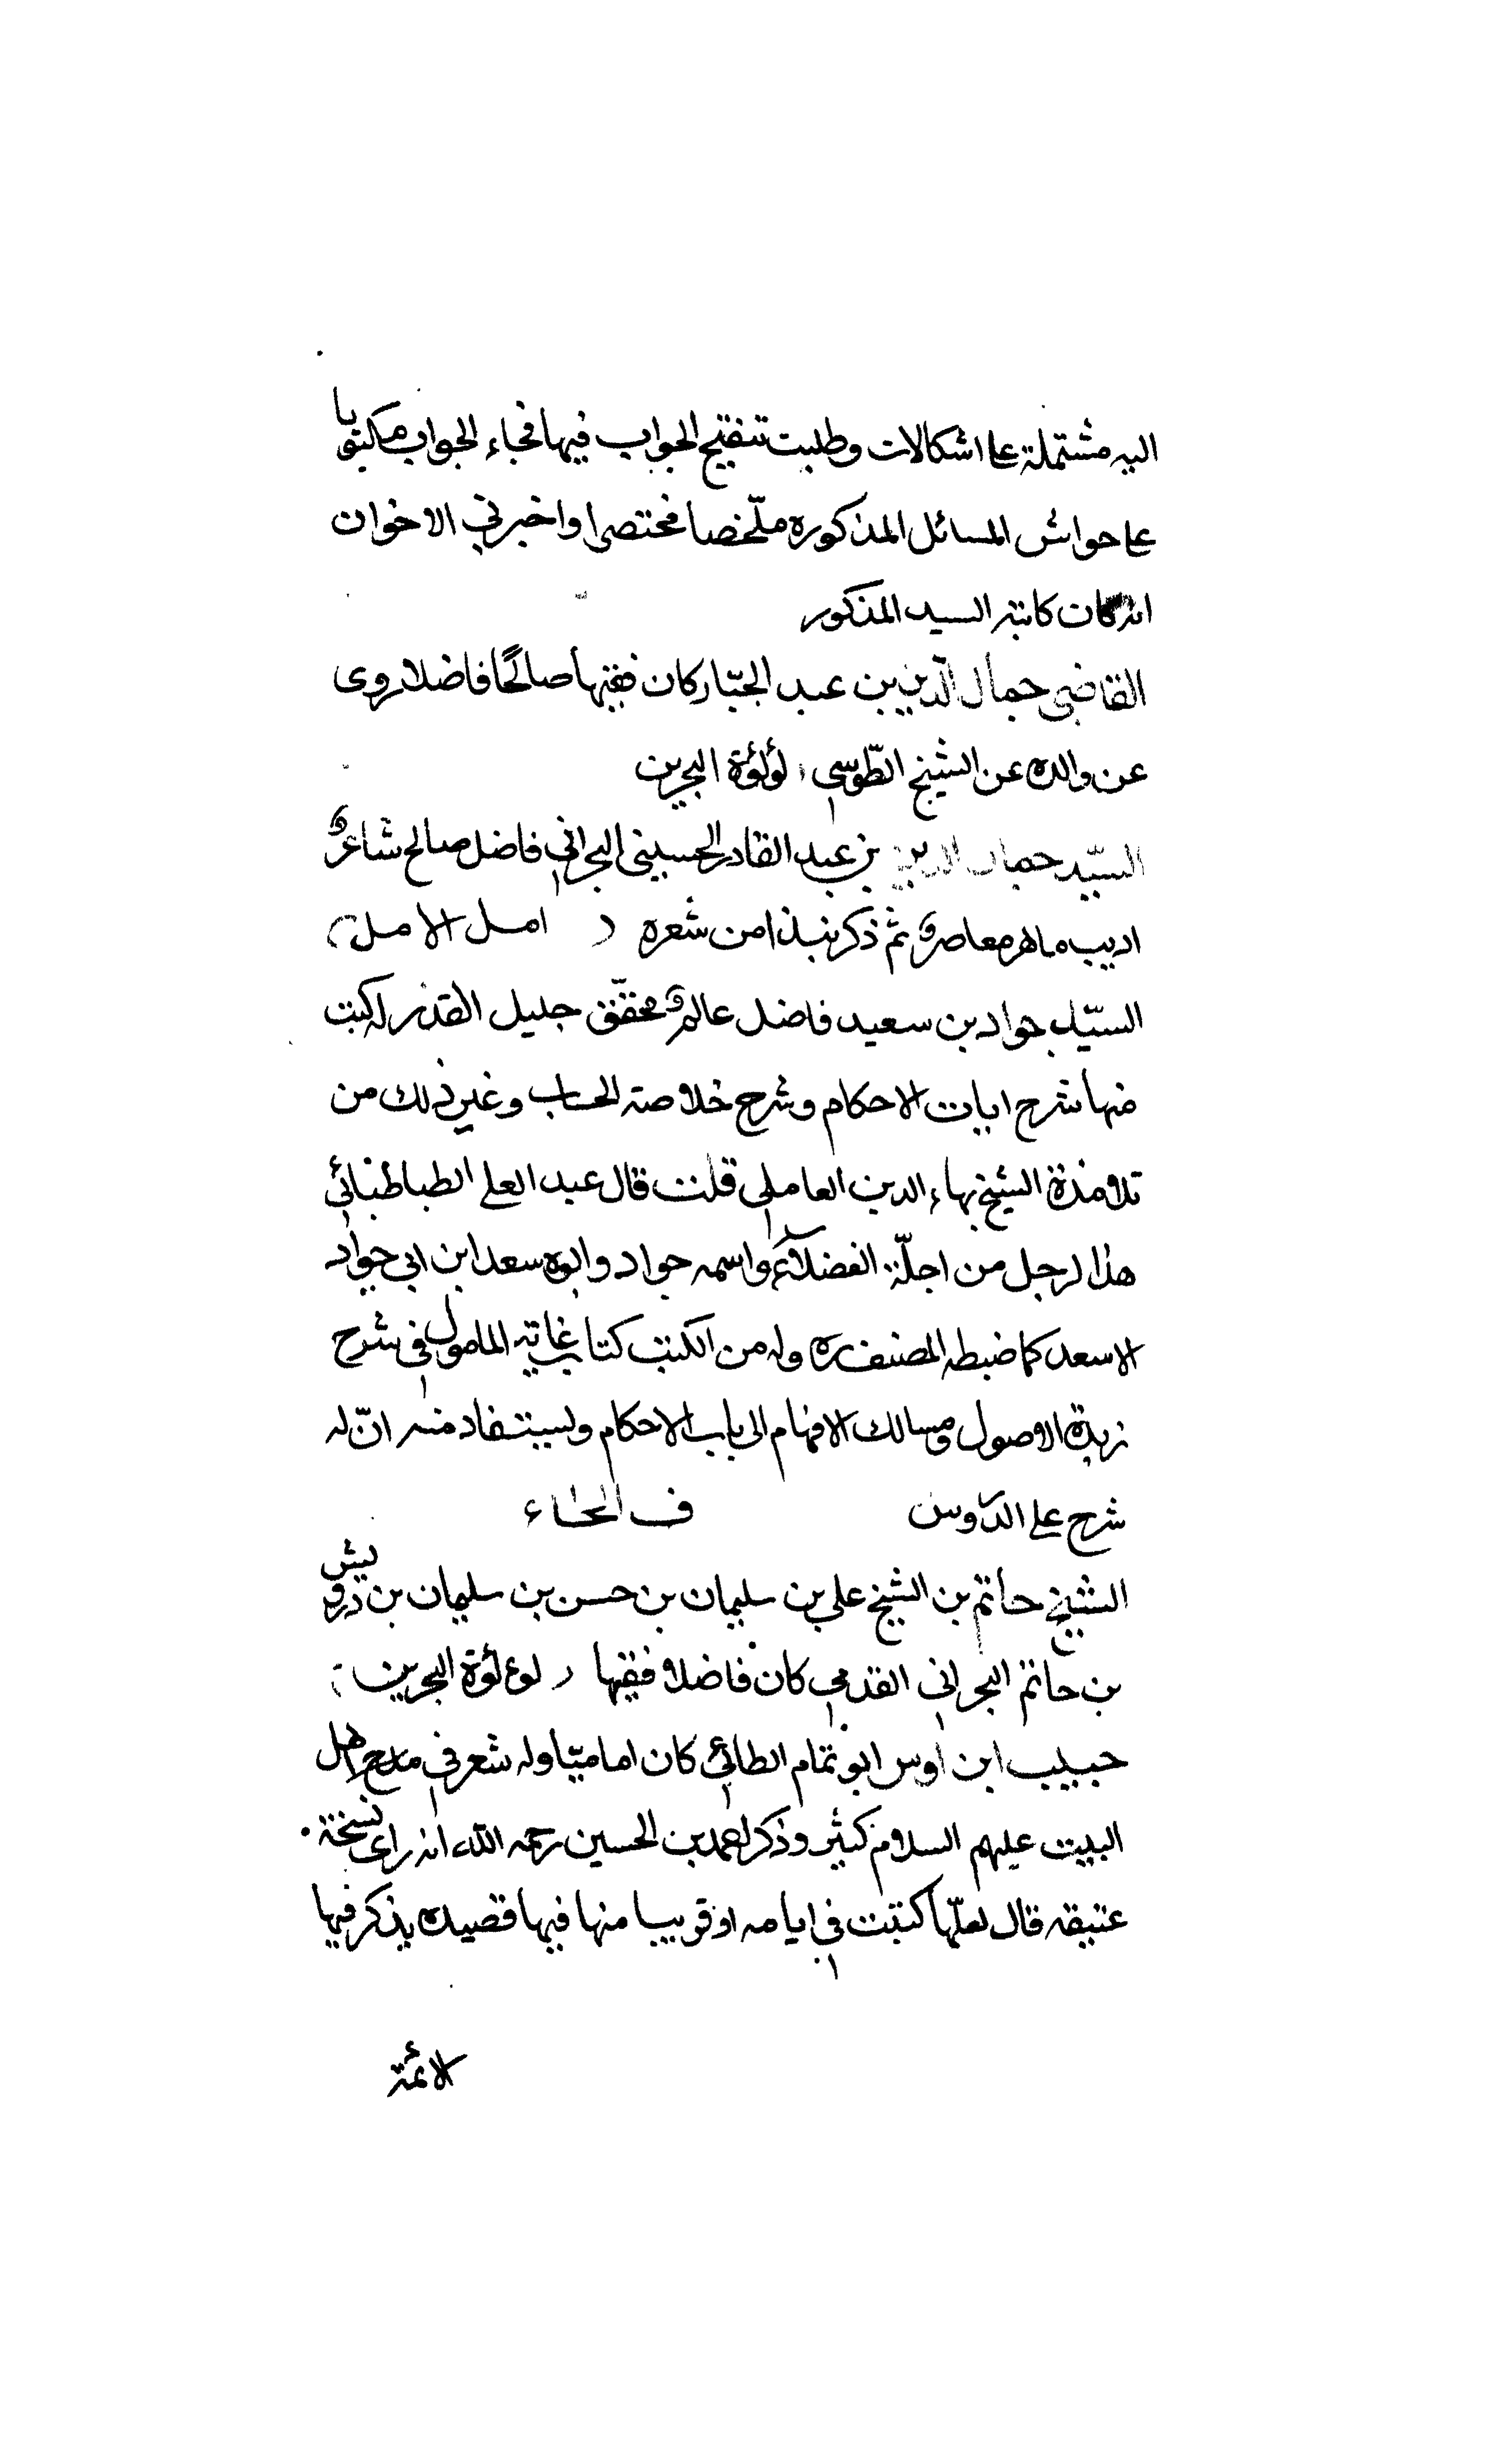 اليه مشتملة على اشكالات وطلبت تنقيح الجواب فيها فجاء الجواب مكتوبا
على حواش المسائل المذكوره ملّخصا مختصرا واخبرني الاخوان
انه كان كاتبه السيد المذكور
القاضي جمال الّدين بن عبد الجبّار كان فقيها صالحًا فاضلا روى
عن والده عن الشيخ الطّوسي لؤلؤة البحرين
السيّد جمال الدين بن عبد القادر الحسيني البحراني فاضل صالح شاعرٌ
اديب ماهر معاصرٌ ثم ذكر نبذا من شعره ( امل الامل )
السيّد جواد بن سعيد فاضل عالمٌ محقّق جليل القدر له كتب
منها شرح ايات الاحكام وشرح خلاصة الحساب وغير ذلك من
تلامذة الشيخ بهاء الدين العاملي قلت قال عبد العلي الطباطبائي
هذا لرجل من اجلّة الفضلاء واسمه جواد وابوه سعد ابن ابي جواد
الاسعد كما ضبطه المصنف ره وله من الكتب كتاب غاية المامول في شرح
زبدة الاصول ومسالك الافهام الى باب الاحكام ويستفاد منه انّ له
شرح على الدّروس ف الحاء
الشيخ حاتم بن الشيخ علي بن سليمان بن حسن بن سليمان بن درويش
بن حاتم البحراني القدمي كان فاضلا فقيها ( لوء لؤة البحرين )
حبيب ابن اوس ابو تمام الطائي كان اماميّا وله شعر في مدح اهل
البيت عليهم السلام كثير وذكر احمد بن الحسين رحمه الله انه راى نسخة
عتيقه قال لعلّها كتبت في ايامه او قريبا منها فيها قصيده يذكر فيها
الائمة